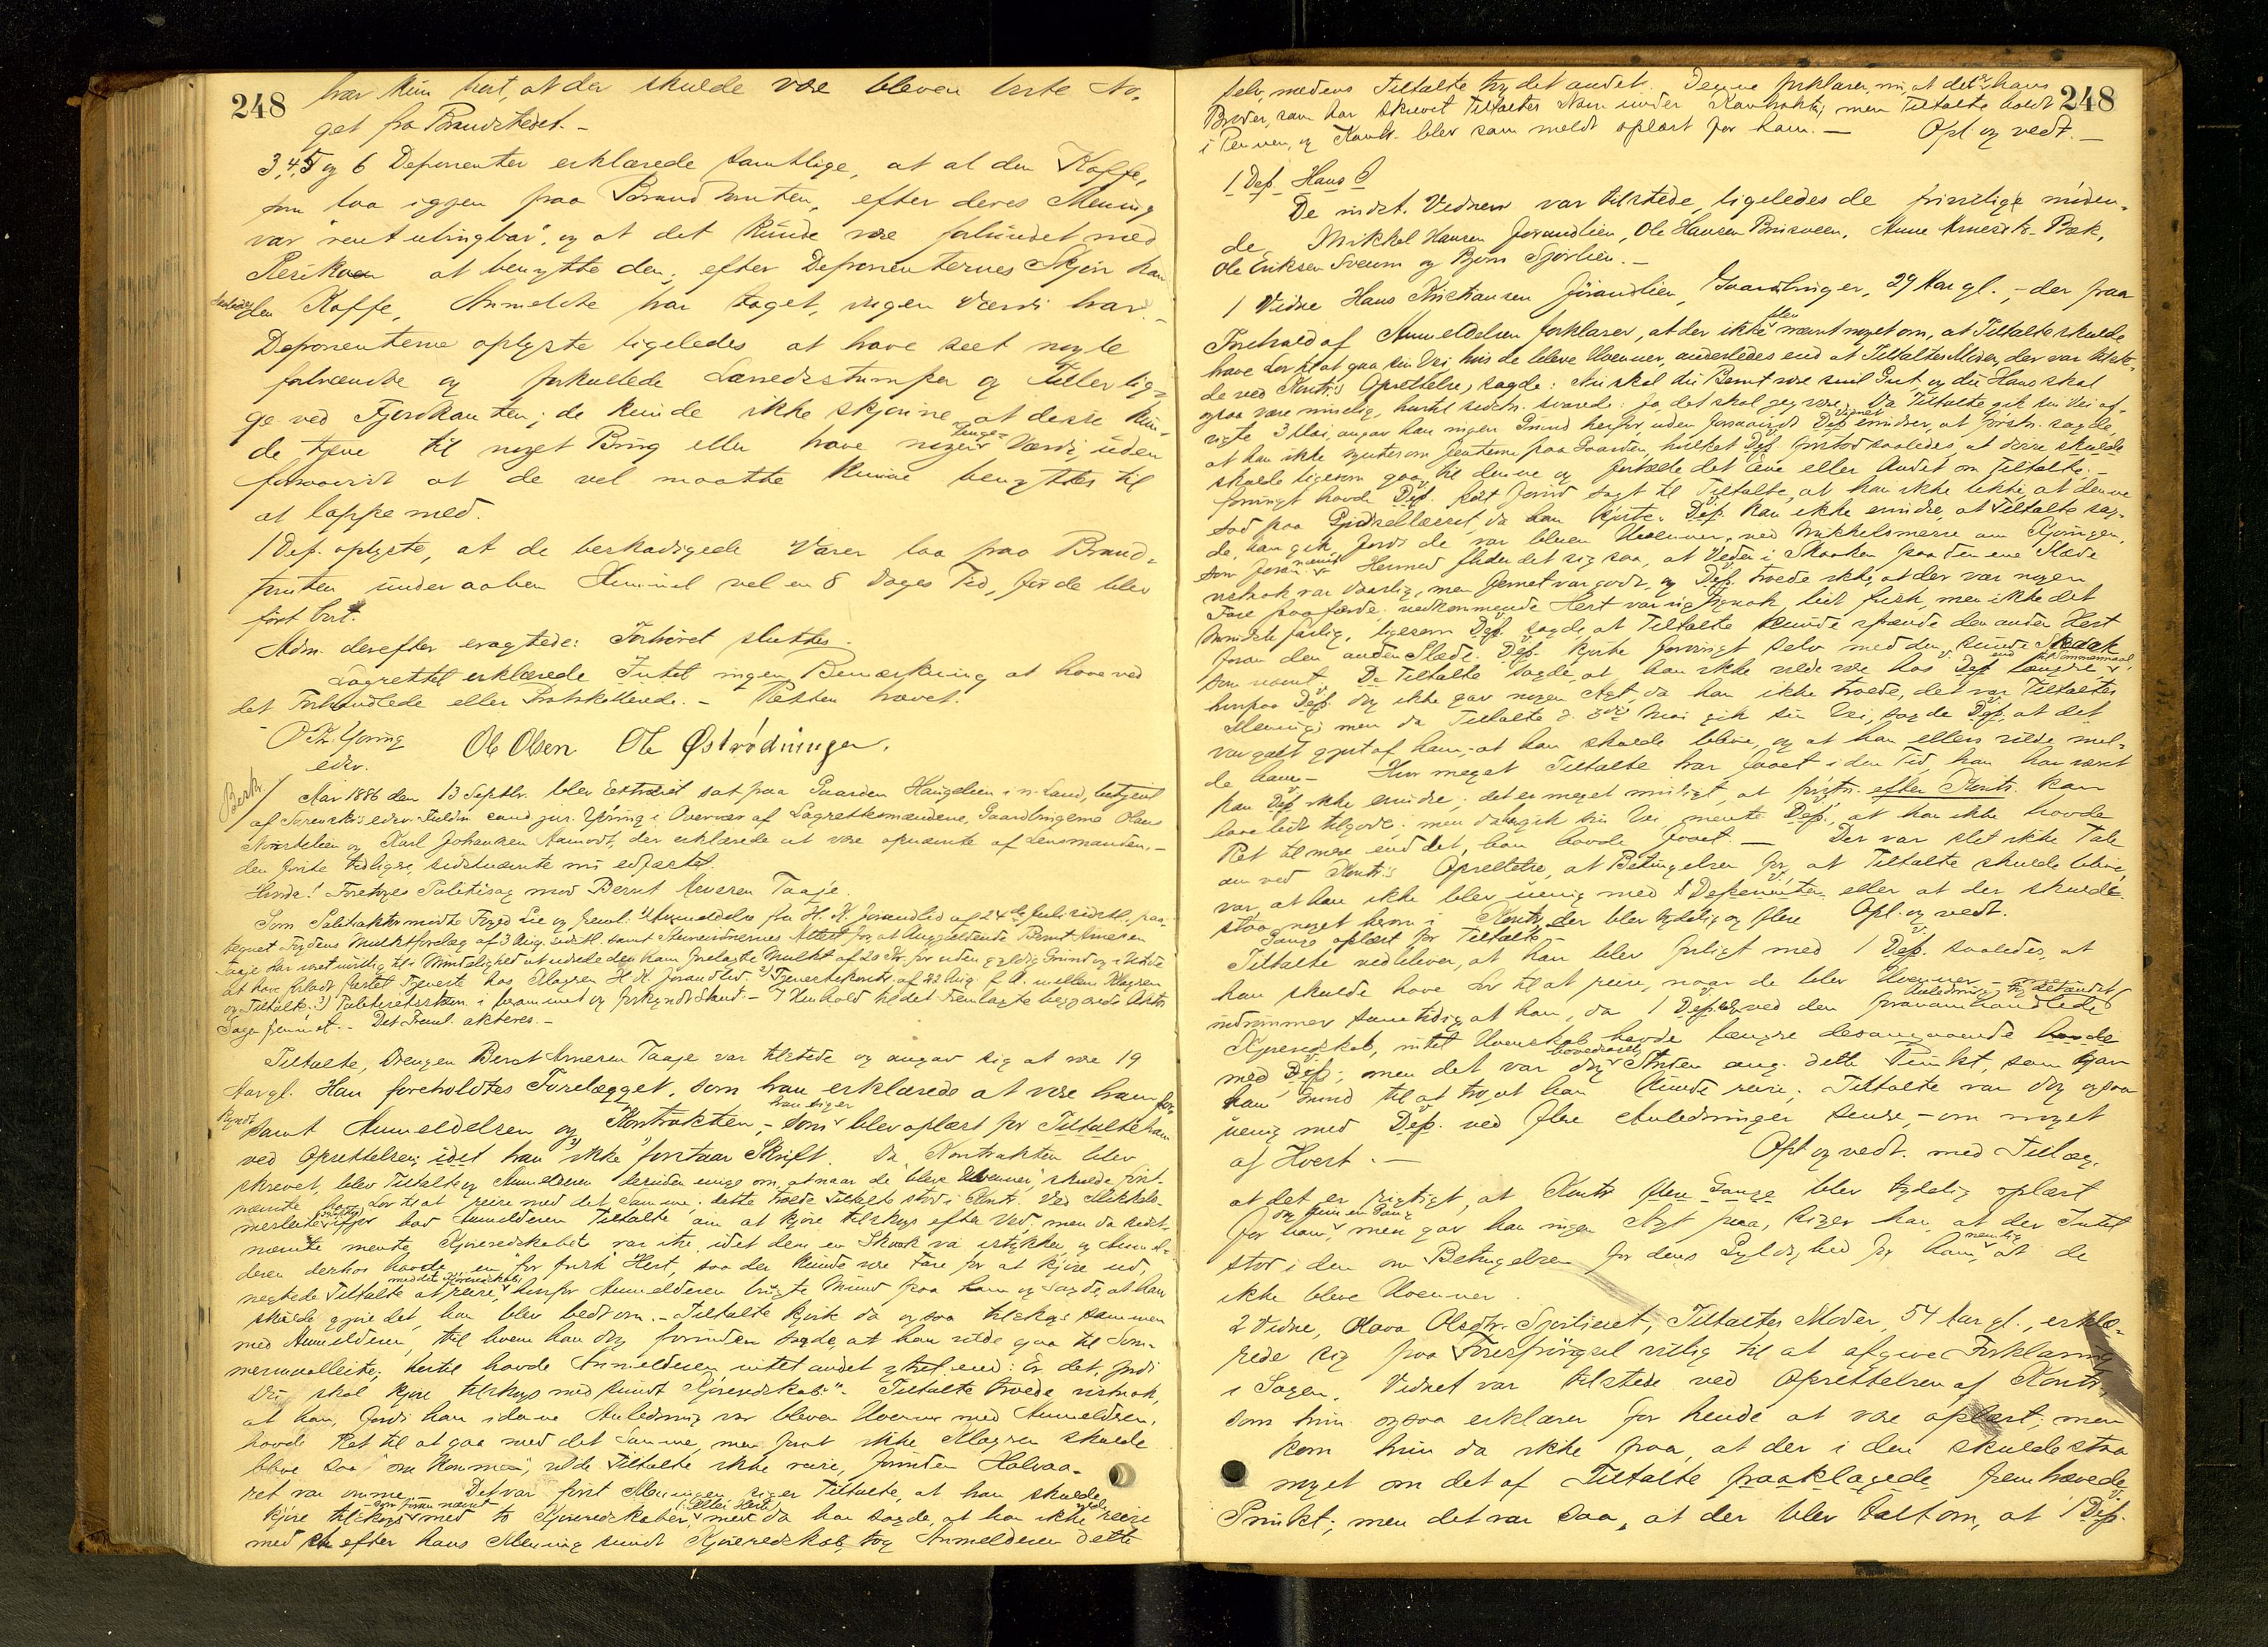 248
har hun hørt, at der skulde være bleven borte No-
get fra Brandstedet. -
3, 4, 5 og 6 Deponenter erklærede samtlige, at al den Kaffe,
som laa igjen paa Brandtomten, efter deres Mening
var "rent ubrugbar", og at det kunde være forbundet med
at benytte den; efter Deponenternes Skjøn har
den Kaffe, Anmeldte har taget, ingen Værdi havt. -
Deponenterne oplyste ligeledes at have seet nogle
forbrændte og forkullede Lærredsstumper og Filler lig-
ge ved Fjordkanten; de kunde ikke skjønne at disse kun-
de tjene til noget Brug eller have nogen Penge- Værdi, uden
forsaavidt at de vel maatte kunne benyttes til
at lappe med.
1 Dep. oplyste, at de beskadigede Varer laa paa Brand-
tomten under aaben Himmel vel en 8 Dages Tid, før de blev
ført bort.
Adm. derefter eragtede: Forhøret sluttes.
Lagrettet erklærede Intet ingen Bemærkning at have ved
det Forhandlede eller Protokollerede. - Retten hævet.
Ole Olsen Ole Østrødningen.
edsv.
Aar 1886 den 13 Septbr. blev Extraret sat paa Gaarden Haugelien i n. Land, betjent
af Sorenskr's edsv. Fuldm. cand. jur. i Overvær af Lagrettesmændene, Gaardbrugerne Olaus
og Karl Johansen Aamodt, der erklærede at være opnævnte af Lensmanden. -
den første tidligere, sidstnævnte nu edfæstet.
Foretoges Politisag mod Bernt Arnesen Taaje.
Som Politiaktor mødte Foged Lie og freml. 1) Anmeldelse fra H. K. Jørandlid af 24de Juli sidstl., paa-
tegnet Fogdens Mulktforelæg af 3 Aug. sidstl. samt Stevnevidnernes Attest for at Angjældende Bernt Arnesen
Taaje har været uvillig til i Mindelighed at udrede den ham forelagte Mulkt af 20 Kr. for uden gyldig Grund og i Utide
at have forladt fæstet Tjeneste hos Klageren H. K. Jørandlid 2) Tjenestekontr. af 22 Aug. f. A. mellem Klageren
og Tiltalte; 3) Politiretsstevn. i berammet og forkyndt Stand. - I Henhold til det Fremlagte begjærede Aktor
Sagen fremmet. - Det Freml. akteres. -
Tiltalte, Drengen Bernt Arnesen Taaje var tilstede og angav sig at være 19
Aar gl. Han foreholdtes Forelægget, som han erklærede at være ham for-
kyndt
samt Anmeldelsen og Kontrakten, - som han siger blev oplæst for Tiltalte ham
ved Oprettelsen; idet han ikke forstaar Skrift. Da Kontrakten blev
skrevet, blev Tiltalte og Anmelderen desuden enige om, at naar de bleve Uvenner, skulde først-
nævnte have Lov til at reise med det samme; dette troede Tiltalte stod i Kontr. Ved Mikkels-
messetider ifjor bad Anmelderen Tiltalte om at kjøre tilskogs efter Ved; men da sidst-
nævnte mente, Kjøreredskabet var itu, idet den ene Skaak var istykker, og Anmel-
deren derhos havde en "for frisk" Hest, saa der kunde være Fare for at kjøre ud,
negtede Tiltalte at reise med det Kjøreredskab, hvorfor Anmelderen brugte Mund paa ham og sagde, at han
skulde gjøre det, han blev bedt om. - Tiltalte kjørte da ogsaa tilskogs sammen
med Anmelderen, til hvem han dog forinden sagde, at han vilde gaa til Som-
mermaalleite; hertil havde Anmelderen intet andet ytret end: Er det, fordi
Du skal kjøre tilskogs med sundt Kjøreredskab?" - Tiltalte troede vistnok,
at han, fordi han i denne Anledning var bleven Uvenner med Anmelderen,
havde Ret til at gaa med det Samme, men forat ikke Klageren skulde
blive saa "om Konmen", vilde Tiltalte ikke reise, førinden Halvaa-
ret var omme. - Det var først Meningen, siger Tiltalte, at han skulde
kjøre tilskogs - som foran nævnt - med to Kjøreredskaber (: eller Heste), men da han sagde, at han ikke vilde reise
med et efter hans Mening sundt Kjøreredskab, tog Anmelderen dette
248
selv, medens Tiltalte tog det andet. Denne forklarer nu, at det er hans
Broder, som har skrevet Tiltaltes Navn under Kontrakten; men Tiltalte holdt
i Pennen, og Kontr. blev som meldt oplæst for ham. - Opl. og vedt. -
1 Dep. Hans
De indst. Vidner var tilstede, ligeledes de frivillige møden-
de Mikkel Hansen Jørandlien, Ole Hansen Anne Bæk,
Ole Eriksen Sveum og Bjørn Sjørlien. -
1 Vidne Hans Kristiansen Jørandlien, Gaardbruger, 29 Aar gl., - der paa
Forehold af Anmeldelsen forklarer, at der ikke blev nævnt noget om, at Tiltalte skulde
have Lov til at gaa sin Vei, hvis de bleve Uvenner, anderledes end at Tiltaltes Moder, der var tilste-
de ved Kontr's Oprettelse, sagde: Nu skal du Bernt være snil Gut, og du Hans skal
ogsaa være snil mod ham, hertil svarede: Ja, det skal jeg være. Da Tiltalte gik sin Vei af-
vigte 3 Mai, angav han ingen Grund herfor, uden forsaavidt Vidnet erindrer, at førstn. sagde,
at han ikke syntes om Jenterne paa Gaarden, hvilket Dep. forstod saaledes, at disse skulde
skulde ligesom gaa til denne og fortælle det Ene eller Andet om Tiltalte. -
forøvrigt havde Dep. kort forud sagt til Tiltalte, at han ikke likte, at denne
stod paa Gjødsellæsset, da han kjørte. Dep. kan ikke erindre, at Tiltalte sag-
de, han gik, fordi de var bleven Uvenner, ved Mikkelsmesse om Kjøringen,
som foran nævnt. Hermed forholder det sig saa, at Veden i Skaaken paa den ene Slæde
vistnok var daarlig, men Jernet var godt, og Dep. troede ikke, at der var nogen
Fare paafærde; vedkommende Hest var vistnok lidt frisk, men ikke det
mindste farlig, ligesom Dep. sagde, at Tiltalte kunde spænde den anden Hest
foran den anden Slæde. Dep. kjørte forøvrigt selv med den
som nævnt. Da Tiltalte sagde, at han ikke vilde være hos Dep. længere end til Sommermaal,
hvorpaa Dep. dog ikke gav nogen Agt, da han ikke troede, det var Tiltaltes
Mening; men da Tiltalte d. 3die Mai gik sin Vei, sagde Dep., at det
var galt gjort af ham, at han skulde blive, og at han ellers vilde mel-
de ham. - Hvor meget Tiltalte har faaet i den Tid, han har været
kan Dep. ikke erindre; det er meget muligt, at førstn. efter Kontr. kan
have lidt tilgode; men da han gik sin Vei, mente Dep., at han ikke havde
Ret til mere end det, han havde faaet. - Der var slet ikke Tale
om ved Kontr's Oprettelse, at Betingelsen for, at Tiltalte skulde blive,
var, at han ikke blev uenig med Deponenten eller at der skulde
staa noget herom i Kontr., der blev tydelig og flere Opl. og vedt.
Gange oplæst for Tiltalte. -
Tiltalte vedblever, at han blev forligt med 1 Dep. saaledes, at
han skulde have Lov til at reise, naar de blev Uvenner
indrømmer samtidig at han, da 1 Dep. ved den foranomhandlede Anledning tog det andet
Kjøreredskab, intet Uvenskab havde længre desangaaende
med Dep.; men det var dog hovedsagelig Striden ang. dette Punkt, som gav
ham Grund til at tro, at han kunde reise; Tiltalte var dog ogsaa
uenig med Dep. ved flere Anledninger senere, - om noget
af Hvert. - Opl. og vedt. med Tillæg,
at det er rigtigt, at Kontr. flere Gange blev tydelig oplæst
for ham, men gav han ingen Agt paa, siger han, at der Intet
stod i den om Betingelsen for dens Gyldighed for ham, nemlig at de
ikke bleve Uvenner.
2 Vidne, Olava Olsdtr. Sjørlieset, Tiltaltes Moder, 54 Aar gl., erklæ-
rede sig paa Forespørgsel villig til at afgive Forklaring
i Sagen. Vidnet var tilstede ved Oprettelsen af Kontr.,
som hun ogsaa erklærer for hende at være oplæst; men
kom hun da ikke paa, at der i den skulde staa
noget om det af Tiltalte paaklagede fremhævede
Punkt; men det var saa, at der blev talt om, at 1 Dep.